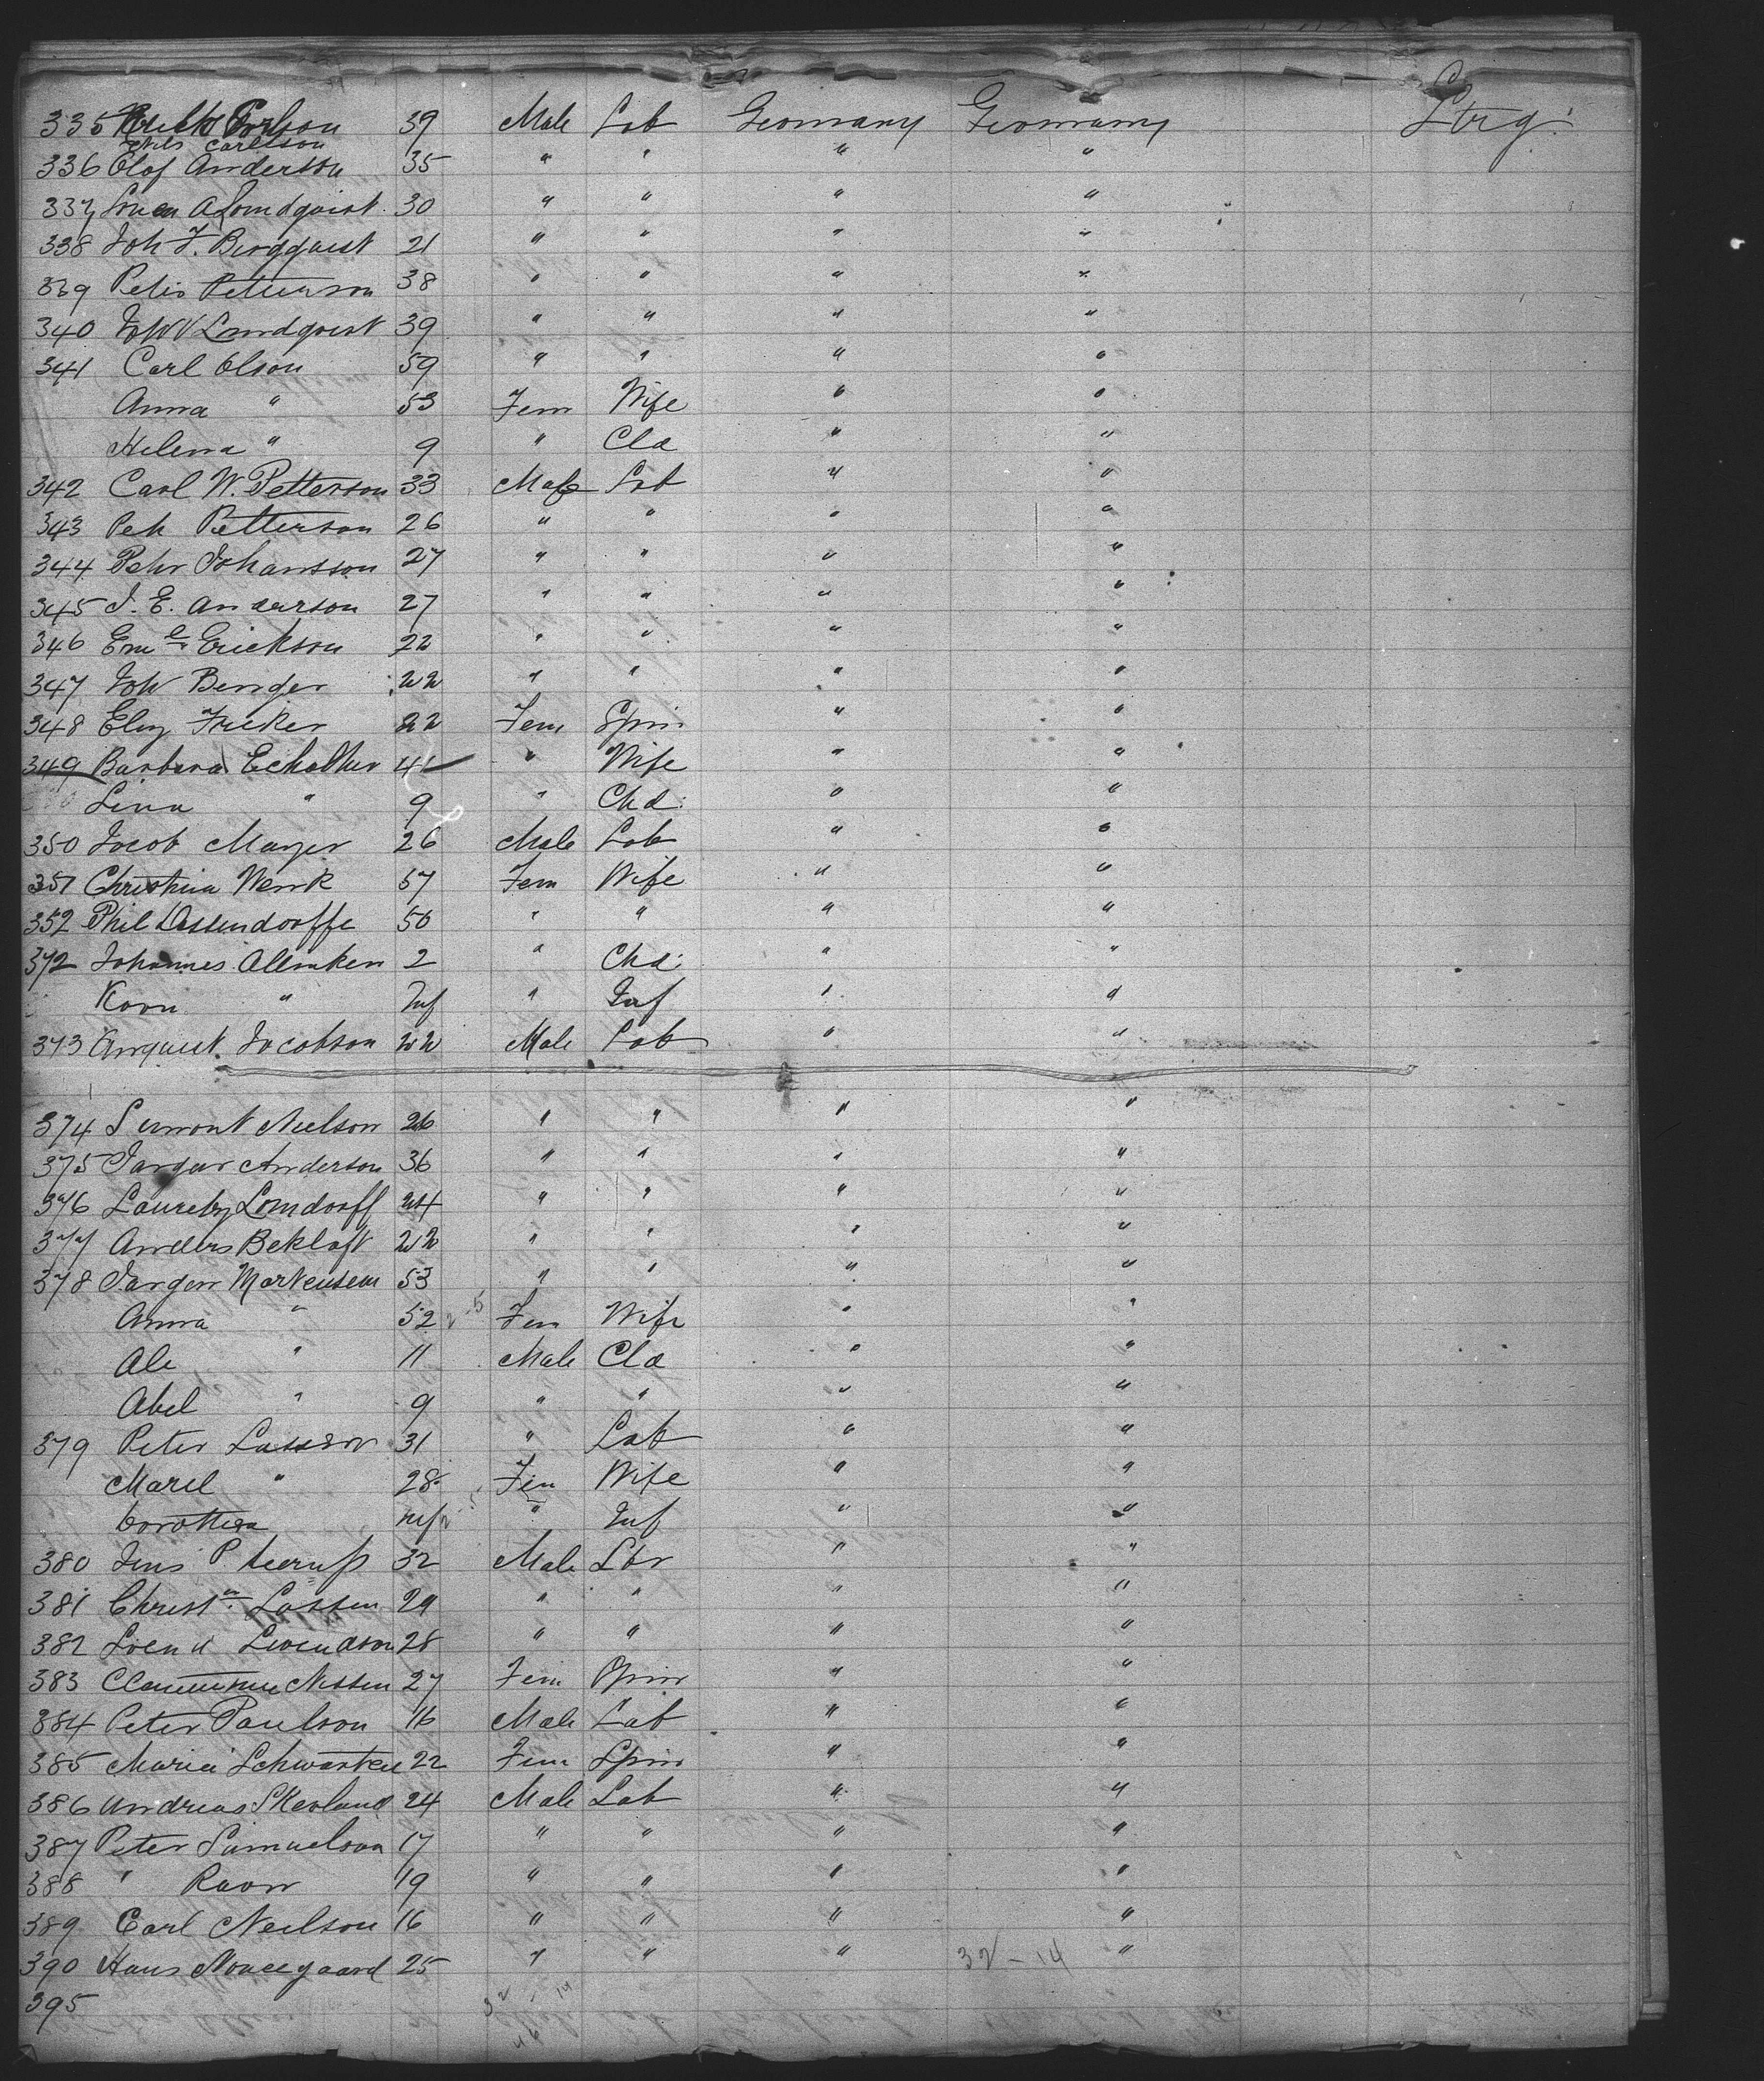 335 Carlson 39 Male Lab Germany Germany Strg
Nils Carlson
336 Olof Anderson 35 " " " "
337 A Lundquist 30 " " " "
338 Joh F. Bergquist 21 " " " "
339 Petter Petterson 38 " " " "
340 Joh Lundquist 39 " " " "
341 Carl Olson 59 " " " "
Anna " 53 Fem Wife " "
Helena " 9 " Cld " "
342 Carl W. Petterson 33 Male Lab " "
343 Peh Petterson 26 " " " "
344 Pehr Johansson 27 " " " "
345 J. E. Anderson 27 " " " "
346 Em Erickson 22 " " " "
347 Joh Benger 22 " " " "
348 Elez Fricker 22 Fem Spin " "
349 Barbara 41 " Wife " "
Lina " 9 " Chd. " "
350 Jacob Mayer 26 Male Lab " "
351 Christina Wenk 57 Fem Wife " "
352 Phil Dassendorffe 50 " " " "
372 Johannes Allmken 2 " Chd. " "
" Inf " Inf " "
373 Jacobson 22 Male Lab " "
374 Nielson 26 " " " "
375 Jargur Anderson 36 " " " "
376 Lomdorff 24 " " " "
377 Anders Bekloft 22 " " " "
378 Jargen Mortensen 53 " " " "
Anna " 52 Fem Wife " "
Ale " 11 Male Cld " "
Abel " 9 " " " "
379 Peter Lassen 31 " Lab " "
Marel " 28 Fem Wife " "
Dorothea Inf " Inf " "
380 Jens P. 32 Male Lbr " "
381 Christn Lassen 29 " " " "
382 Swendson 28 " " " "
383 Nissen 27 Fem Spin " "
384 Peter Paulson 16 Male Lab " "
385 Maria Schwarten 22 Fem Spin " "
386 Andreas Skovland 24 Male Lab " "
387 Peter Samuelson 17 " " " "
388 " Raon 19 " " " "
389 Carl Neilson 16 " " " "
390 Hans 25 " " " 32 - 14 "
395 32 - 14
46